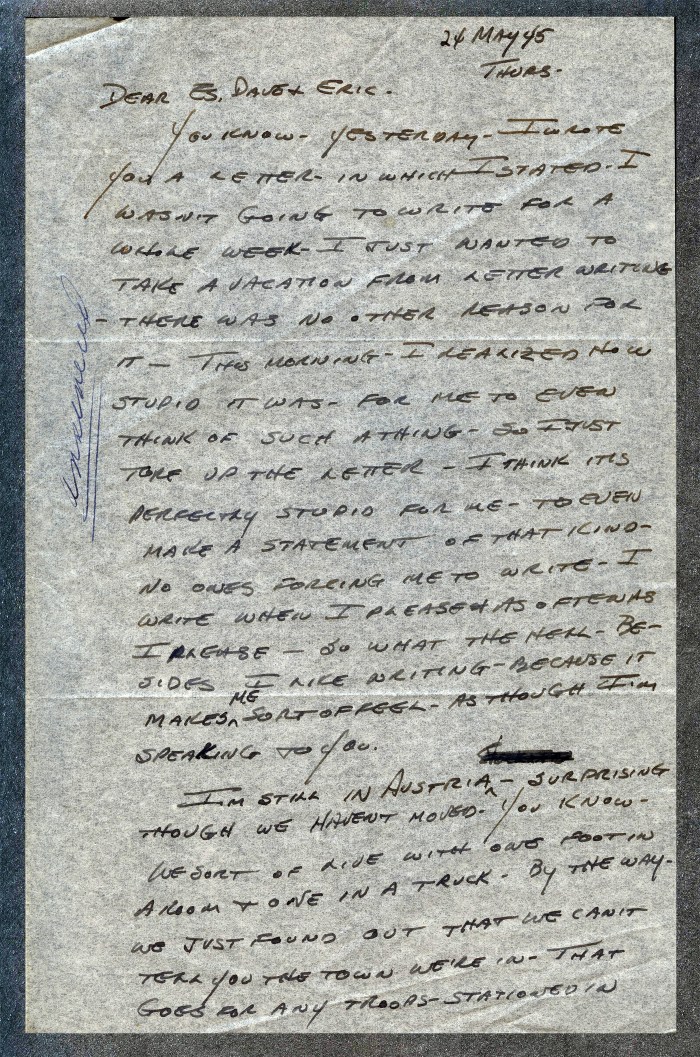 24 MAY 45
THURS-
DEAR ES, DAVE & ERIC-
YOU KNOW- YESTERDAY- I WROTE
YOU A LETTER- IN WHICH I STATED- I
WASN'T GOING TO WRITE FOR A
WHOLE WEEK- I JUST WANTED TO
TAKE A VACATION FROM LETTER WRITING
- THERE WAS NO OTHER REASON FOR
IT- THIS MORNING- I REALIZED HOW
STUPID IT WAS- FOR ME TO EVEN
THINK OF SUCH A THING- SO I JUST
TORE UP THE LETTER- I THINK IT'S
PERFECTLY STUPID FOR ME- TO EVEN
MAKE A STATEMENT OF THAT KIND-
NO ONES FORCING ME TO WRITE- I
WRITE WHEN I PLEASE & AS OFTEN AS
I PLEASE- SO WHAT THE HELL- BE-
SIDES I LIKE WRITING- BECAUSE IT
MAKES ME SORT OF FEEL- AS THOUGH I'M
SPEAKING TO YOU.
I'M STILL IN AUSTRIA- SURPRISING
THOUGH WE HAVEN'T MOVED- YOU KNOW-
WE SORT OF LIVE WITH ONE FOOT IN
A ROOM & ONE IN A TRUCK- BY THE WAY-
WE JUST FOUND OUT THAT WE CAN'T
TELL YOU THE TOWN WE'RE IN- THAT
GOES FOR ANY TROOPS- STATIONED IN